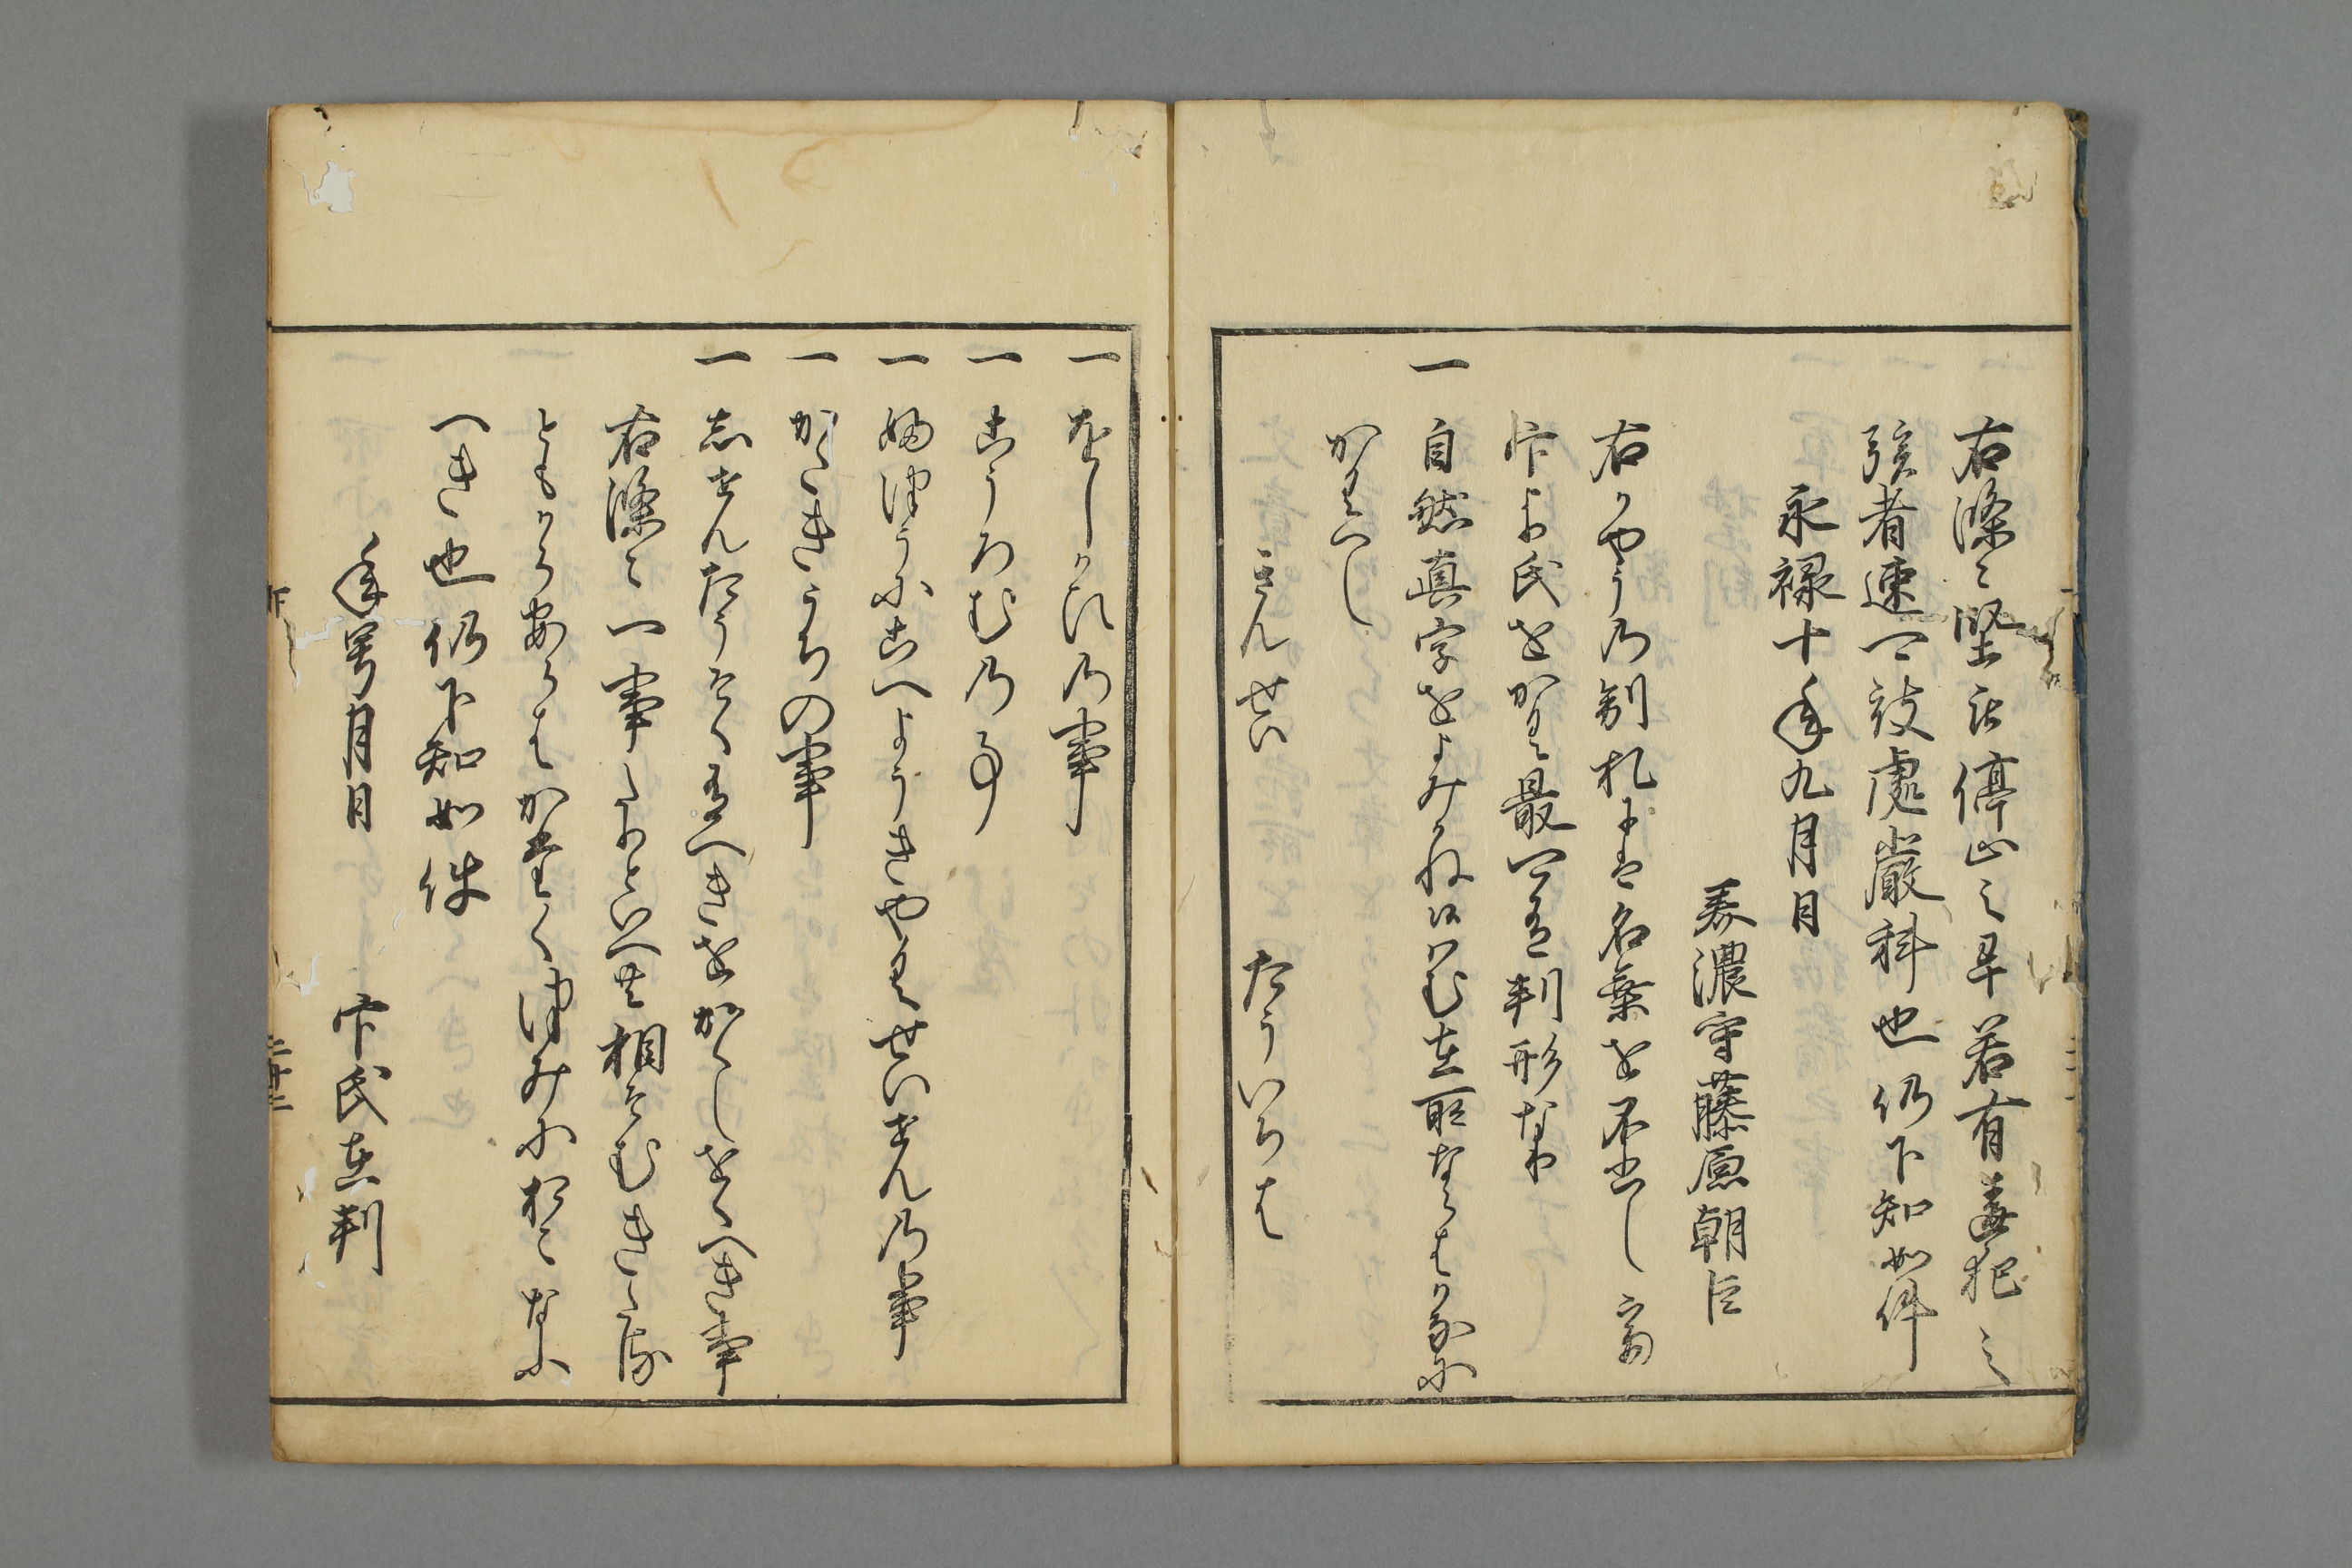 右條々堅令停止之畢若有違犯之
族者速可被處嚴科也仍下知如件
永禄十年九月日
美濃守藤原朝臣
右かやうの制札には名乗を不出し官
作より氏をかき最可有判形なり
一 自然真字をよみかねはむ在所ならはかなに
かきへし
きんせい たういちは
一 をしかひの事
一 こうろむの事
一 ふつうにこへようきやくせいせんの事
一 かたきうちの事
一 志せんたうそく有へきをかくしをくへき事
右條々一事たりといへ共相そむきたる
ともからあらはかたくつみにおこなふ
へき也仍下知如件
年号月日 作氏在判